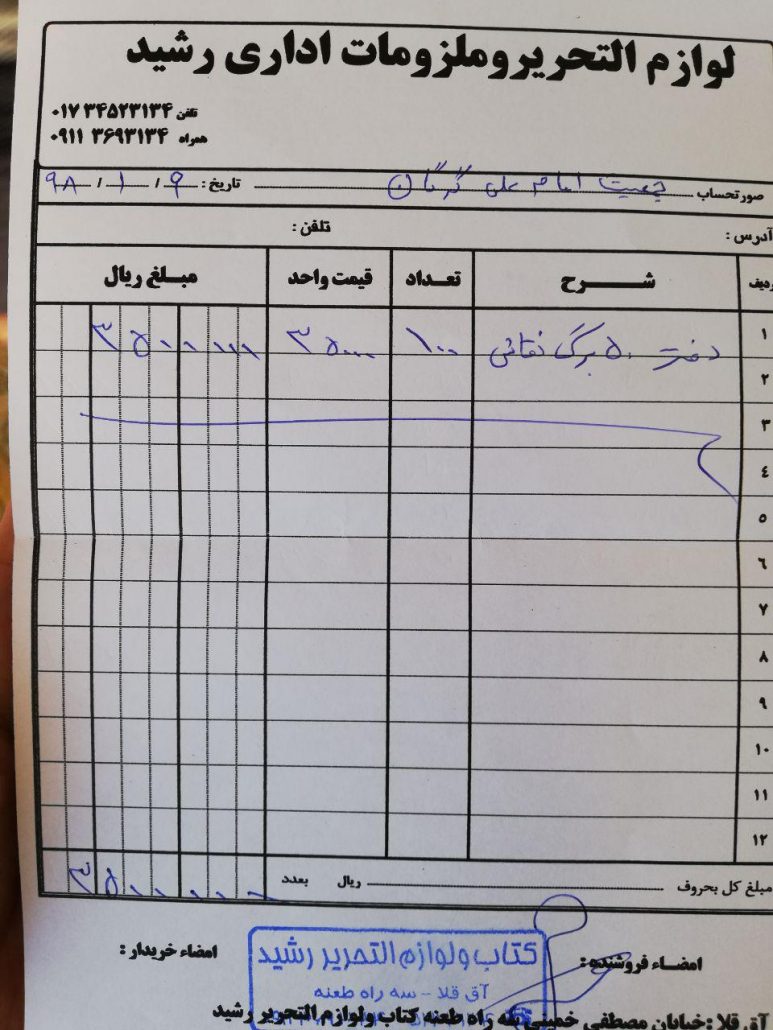 لوازم التحریر وملزومات اداری رشید
تلفن ۰۱۷ ۳۴۵۲۳۱۳۴
همراه ۰۹۱۱ ۳۶۹۳۱۳۴
صورتحساب جمعیت امام علی گرگان تاریخ: ۹ / ۱ / ۹۸
آدرس: تلفن:
ردیف شرح تعداد قیمت واحد مبلغ ریال
۱ دفتر ۵۰ برگ نقاشی ۱۰۰ ۳۵۰۰۰ ۳۵۰۰۰۰۰
۲
۳
٤
۵
۶
۷
۸
۹
۱۰
۱۱
۱۲
مبلغ کل بحروف ریال بعدد ۳۵۰۰۰۰۰
امضاء فروشنده: امضاء خریدار:
کتاب و لوازم التحریر رشید
آق قلا - سه راه طعنه
آق قلا: خیابان مصطفی خمینی سه راه طعنه کتاب ولوازم التحریر رشید